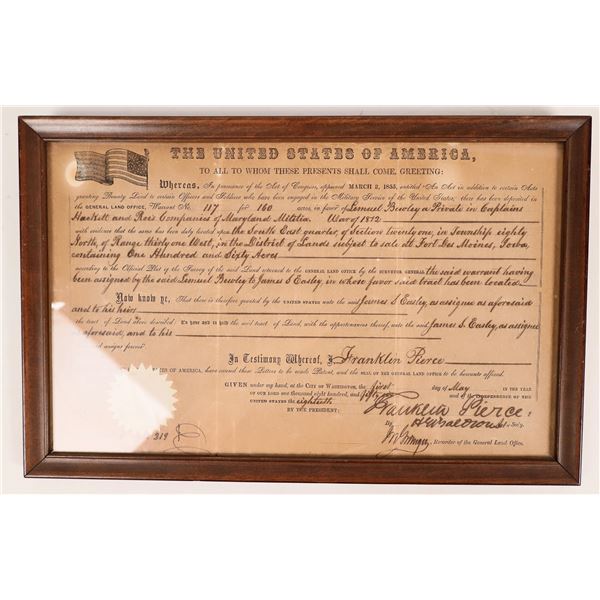 THE UNITED STATES OF AMERICA,
TO ALL TO WHOM THESE PRESENTS SHALL COME, GREETING:
Whereas, In pursuance of the Act of Congress, approved MARCH 3, 1855, entitled "An Act in addition to certain Acts
granting Bounty Land to certain Officers and Soldiers who have been engaged in the Military Service of the United States," there has been deposited in
the GENERAL LAND OFFICE, Warrant No. 117 for 160 acres, in favor of Lemuel Bewley a Private in Captains
Haskett and Roes Companies of Maryland Militia War of 1812
with evidence that the same has been duly located upon the South East quarter, of Section twenty one, in Township eighty
North, of Range thirty one West, in the District of Lands subject to sale at Fort Des Moines, Iowa,
containing One Hundred and Sixty Acres
according to the Official Plat of the Survey of the said Land returned to the GENERAL LAND OFFICE by the SURVEYOR GENERAL the said warrant having
been assigned by the said Lemuel Bewley to James S Easley, in whose favor said tract has been located
Now know ye, That there is therefore granted by the UNITED STATES unto the said James S Easley, as assignee as aforesaid
and to his heirs
the tract of Land above described: To have and to hold the said tract of Land, with the appurtenances thereof, unto the said James S. Easley, as assignee
as aforesaid, and to his
and assigns forever.
In Testimony Whereof, I, Franklin Pierce
OF AMERICA, have caused these Letters to be made Patent, and the SEAL OF THE GENERAL LAND OFFICE to be hereunto affixed.
GIVEN under my hand, at the CITY OF WASHINGTON, the first day of May IN THE YEAR
OF OUR LORD one thousand eight hundred and fifty and of the INDEPENDENCE OF THE
UNITED STATES the eightieth
BY THE PRESIDENT: Franklin Pierce
By Sec'y.
319
Recorder of the General Land Office.